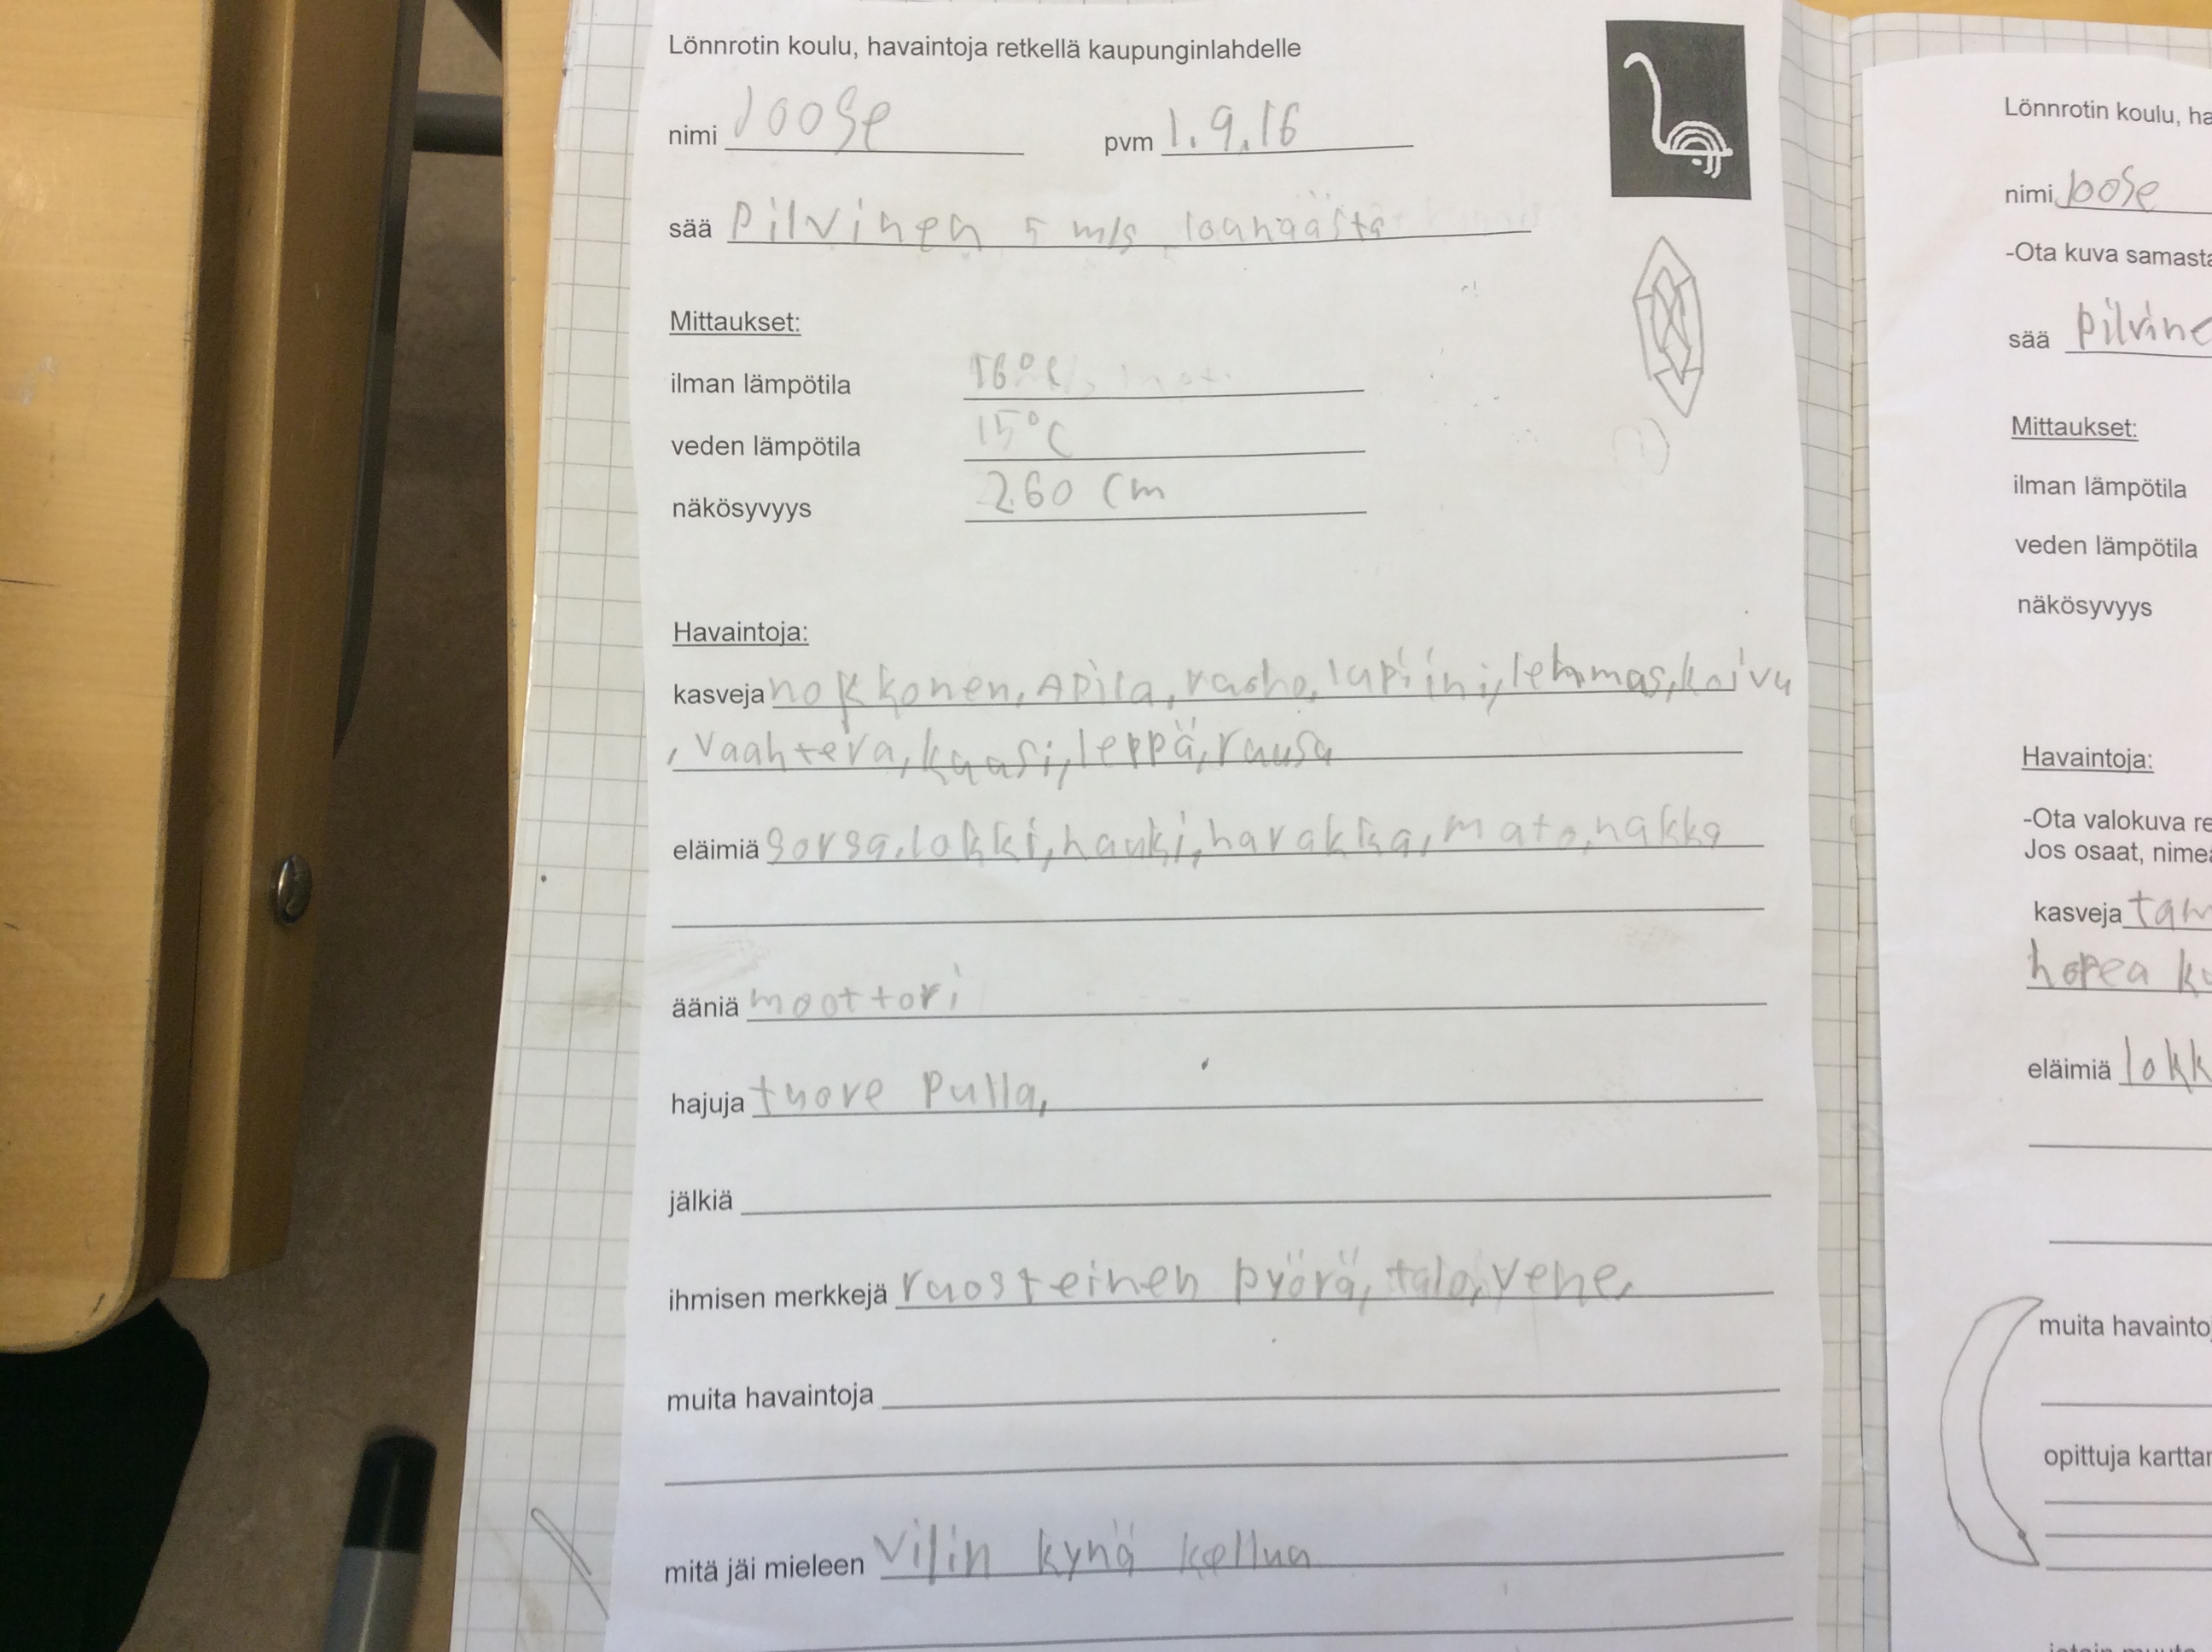 Lönnrotin koulu, havaintoja retkellä kaupunginlahdelle
nimi Joose pvm 1.9.16
sää pilvinen 5 m/s
Mittaukset:
ilman lämpötila 16°C
veden lämpötila 15°C
näkösyvyys 260 cm
Havaintoja:
kasveja nokkonen, Apila, lupiini, lehmas, koivu
, vaahtera, kuusi, leppä, ruusu
eläimiä sorsa, lokki, hauki, harakka, mato, nakka
ääniä moottori
hajuja tuore pulla,
jälkiä
ihmisen merkkejä ruosteinen pyörä, talo, vene,
muita havaintoja
mitä jäi mieleen Vilin kynä kelluu
Lönnrotin koulu, ha
nimi Joose
-Ota kuva samasta
sää pilvine
Mittaukset:
ilman lämpötila
veden lämpötila
näkösyvyys
Havaintoja:
-Ota valokuva re
Jos osaat, nimeä
kasveja tam
hopea ku
eläimiä lokk
muita havainto
opittuja karttar